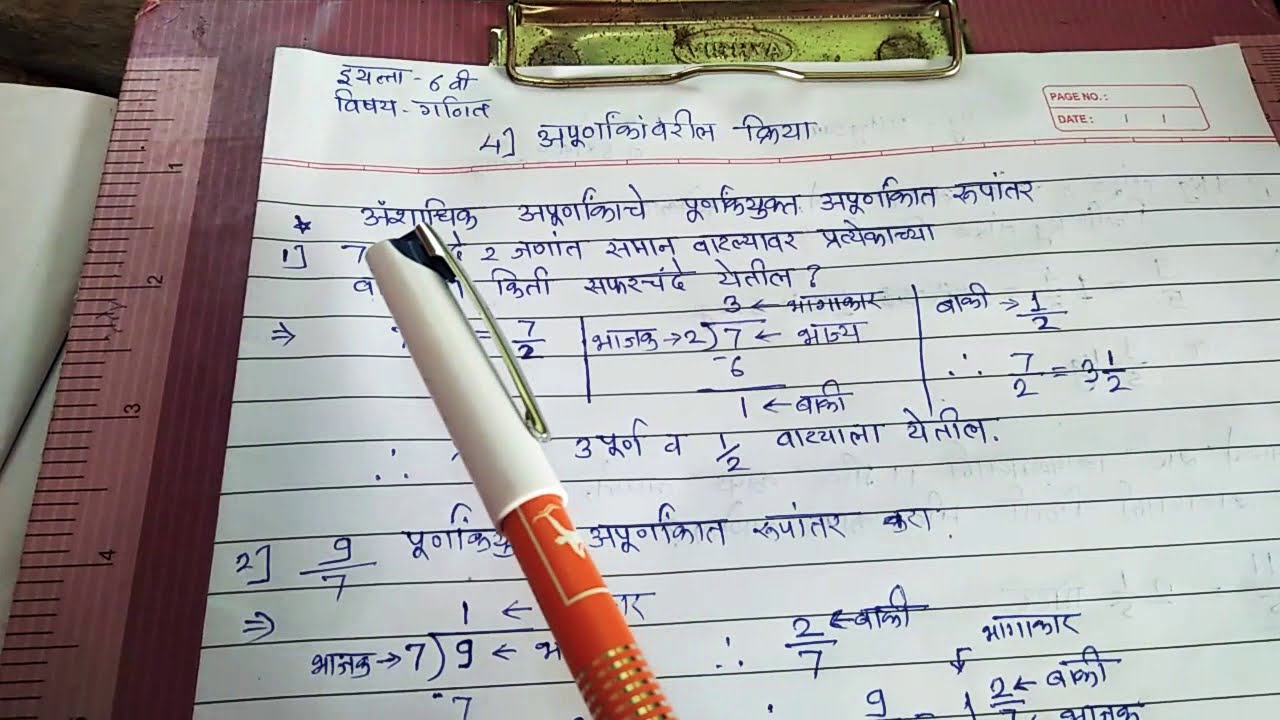 इयत्ता - 6 वी
विषय - गणित
PAGE NO.:
DATE:
4] अपूर्णांकांवरील क्रिया
* अंशाधिक अपूर्णांकाचे पूर्णांकयुक्त अपूर्णांकात रूपांतर
1] 7 2 जणांत समान वाटल्यावर प्रत्येकाच्या
किती सफरचंदे येतील ?
⇒ = 7/2
3 ← भागाकार
भाजक → 2) 7 ← भाज्य
- 6
1 ← बाकी
बाकी → 1/2
∴ 7/2 = 3 1/2
∴ 3 पूर्ण व 1/2 वाट्याला येतील.
2] 9/7 अपूर्णांकात रूपांतर करा
⇒ 1 ←
भाजक → 7) 9 ←
- 7
∴ 2/7 ← बाकी
भागाकार
∴ 9 = 1 2/7 ← बाकी
← भाजक